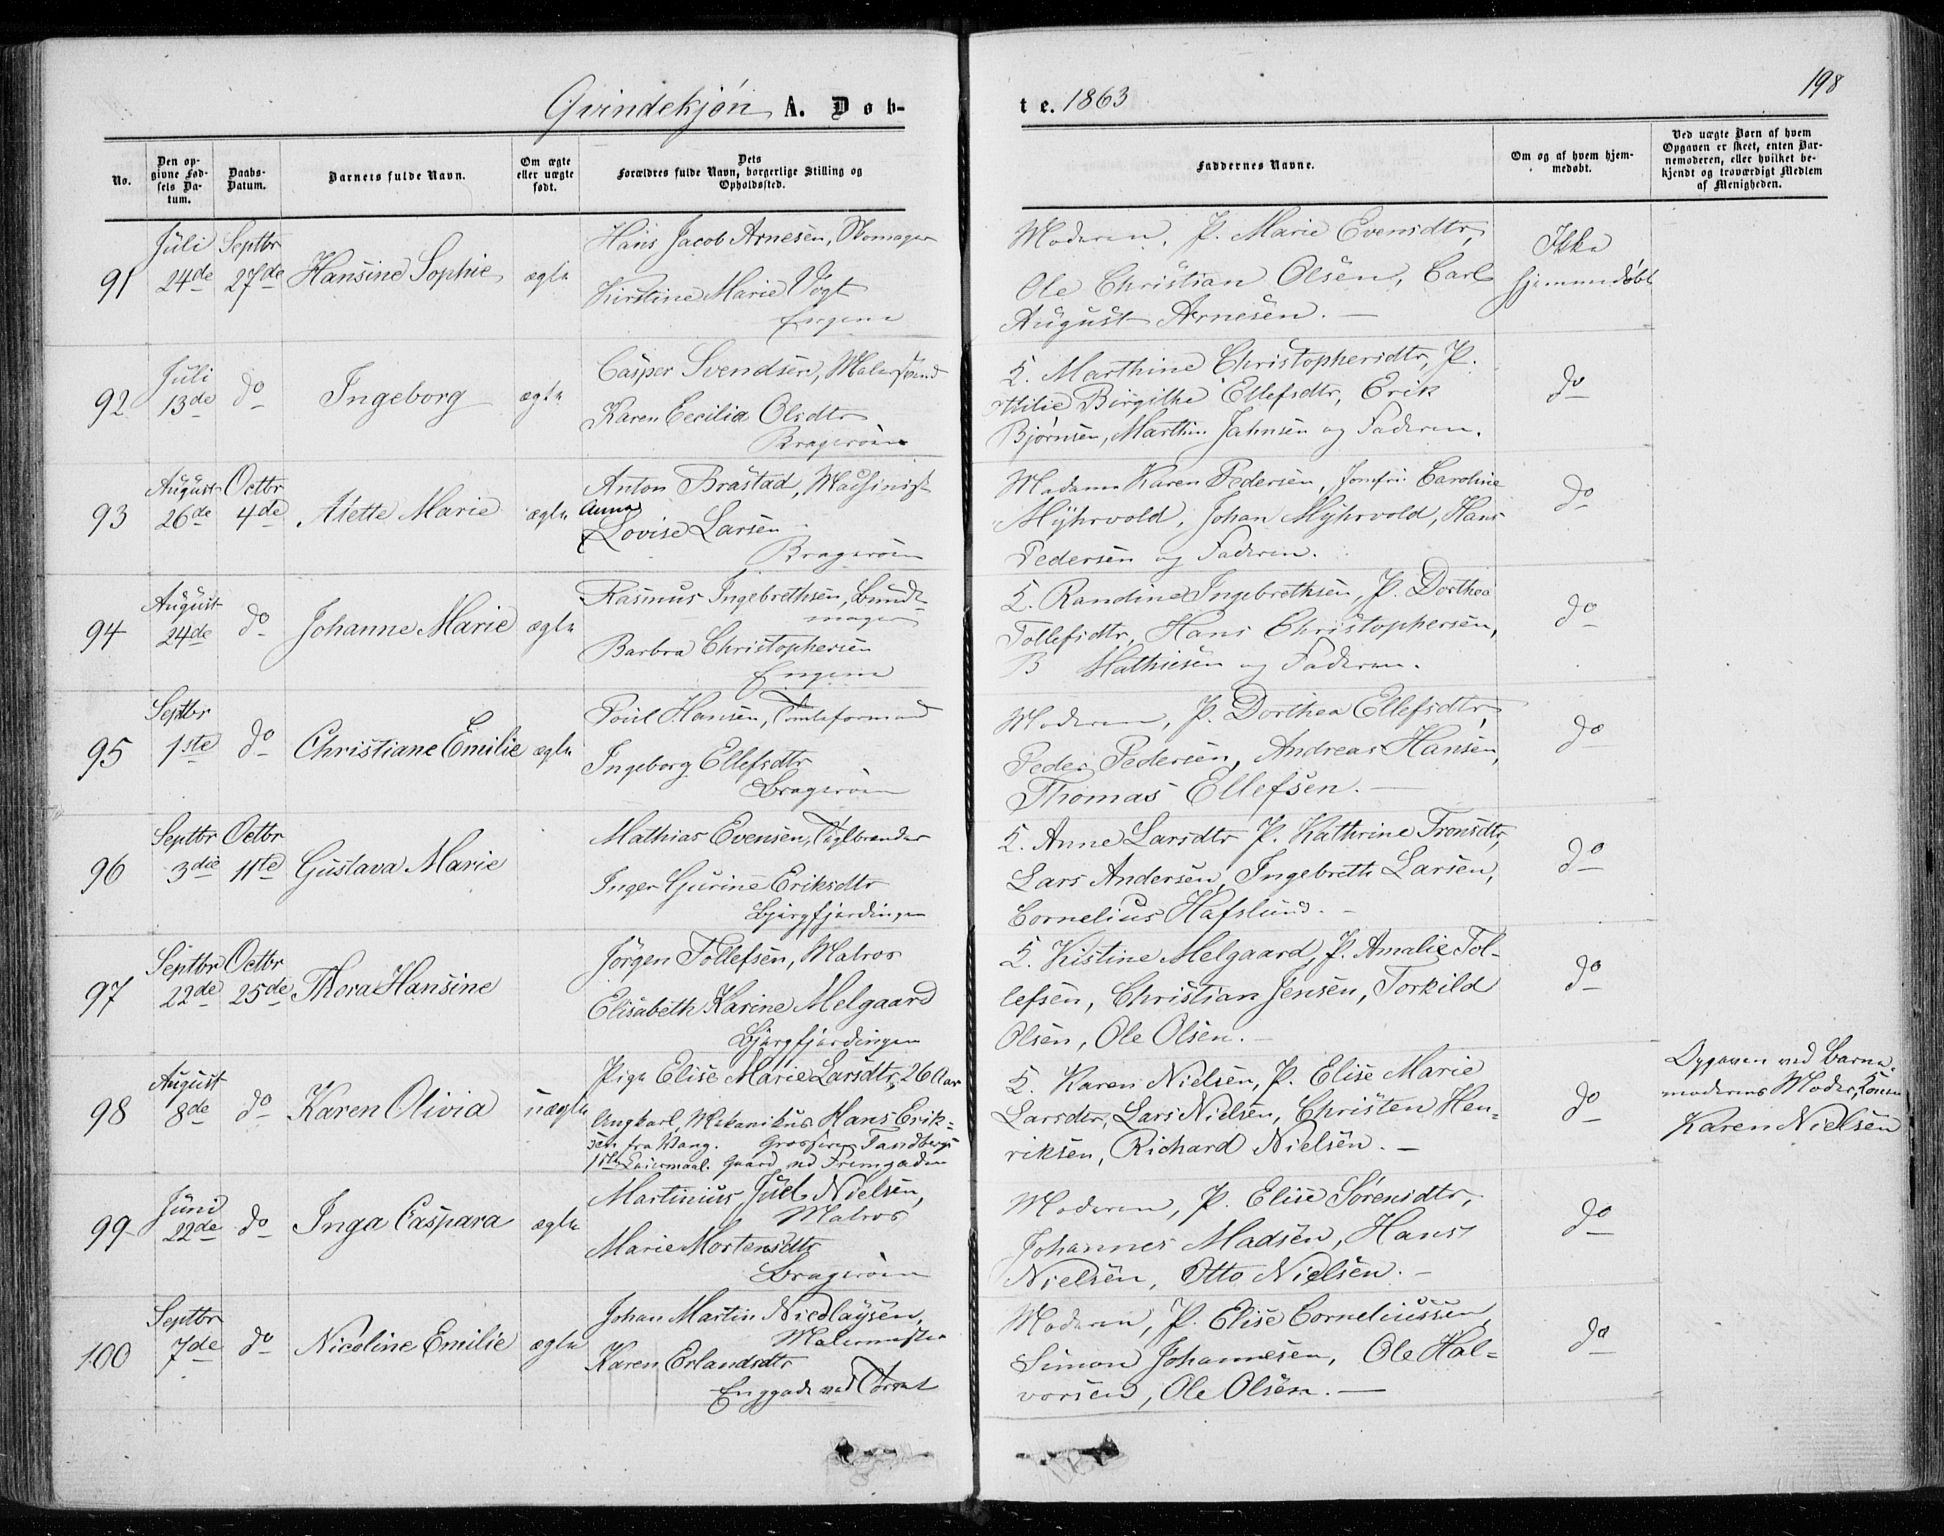 Qvindekjøn A. Døb-
No.
Den op-
givne Fød-
sels Da-
tum.
Daabs-
Datum.
Barnets fulde Navn.
Om ægte
eller uægte
født.
Dets
Forældres fulde Navn, borgerlige Stilling og
Opholdssted.
91 Juli 24de Septbr 27de Hansine Sophie ægte
Hans Jacob Arnesen, Skomager
Kirstine Marie Vogt
Engene
92 Juli 13de do Ingeborg ægte
Casper Svendsen, Malersvend
Karen Cecilia Olsdtr
Bragerøen
93 August 26de Octbr 4de Asette Marie ægte
Anton Brastad, Maschinist
Anna
Lovise Larsen
Bragerøen
94 August 24de do Johanne Marie ægte
Rasmus Ingebrethsen, Bundt-
mager
Barbra Christophersen
Engene
95 Septbr 1ste do Christiane Emilie ægte
Poul Hansen, Tomteformand
Ingeborg Ellefsdtr
Bragerøen
96 Septbr 3die Octbr 11te Gustava Marie
Mathias Evensen, Teglbrænder
Inger Gurine Eriksdtr
Bjergfjerdingen
97 Septbr 22de Octbr 25de Thora Hansine
Jørgen Tollefsen, Matros
Elisabeth Karine Melgaard
Bjergfjerdingen
98 August 8de do Karen Olivia uægte
Pige Elise Marie Larsdtr, 26 Aar
Ungkarl, Mekanikus Hans Erik-
sen fra Vang. Grosserer Tandbergs
1ste Leiermaal. Gaard ved Fremgaden
99 Juni 22de do Inga Caspara ægte
Martinius Juel Nielsen,
Matros
Marie Mortensdtr
Bragerøen
100 Septbr 7de do Nicoline Emilie ægte
Johan Martin Nicolaysen,
Malermester
Karen Erlandsdtr
Enggade ved Torvet
te. 1863
198
Faddernes Navne.
Om og af hvem hjem-
medøbt.
Ved uægte Børn af hvem
Opgaven er skeet, enten Bar-
nemoderen, eller hvilket be-
kjendt og troværdigt Medlem
af Menigheden.
Moderen, P. Marie Evensdtr,
Ole Christian Olsen, Carl
August Arnesen. —
Ikke
hjemmedøbt
K. Marthine Christophersdtr, P.
Otilie Birgithe Ellefsdtr, Erik
Bjørnsen, Marthin Jahnsen og Faderen.
do
Madam Karen Pedersen, Jomfru Caroline
Myhrvold, Johan Myhrvold, Hans
Pedersen og Faderen.
do
K. Randine Ingebrethsen, P. Dorthea
Tollefsdtr, Hans Christophersen,
B Mathiesen og Faderen.
do
Moderen, P. Dorthea Ellefsdtr,
Peder Pedersen, Andreas Hansen,
Thomas Ellefsen. —
do
K. Anne Larsdtr P. Kathrine Tronsdtr,
Lars Andersen, Ingebreth Larsen,
Cornelius Hafslund. —
do
K. Kistine Melgaard, P. Amalie Tol-
lefsen, Christian Jensen, Torkild
Olsen, Ole Olsen. —
do
K. Karen Nielsen, P. Elise Marie
Larsdtr, Lars Nielsen, Christen Hen-
riksen, Richard Nielsen. —
do
Opgaven ved Barne-
moderens Moder, Konen
Karen Nielsen
Moderen, P. Elise Sørensdtr,
Johannes Madsen, Hans
Nielsen, Otto Nielsen. —
do
Moderen, P. Elise Corneliussen,
Simon Johannesen, Ole Hal-
vorsen, Ole Olsen. —
do